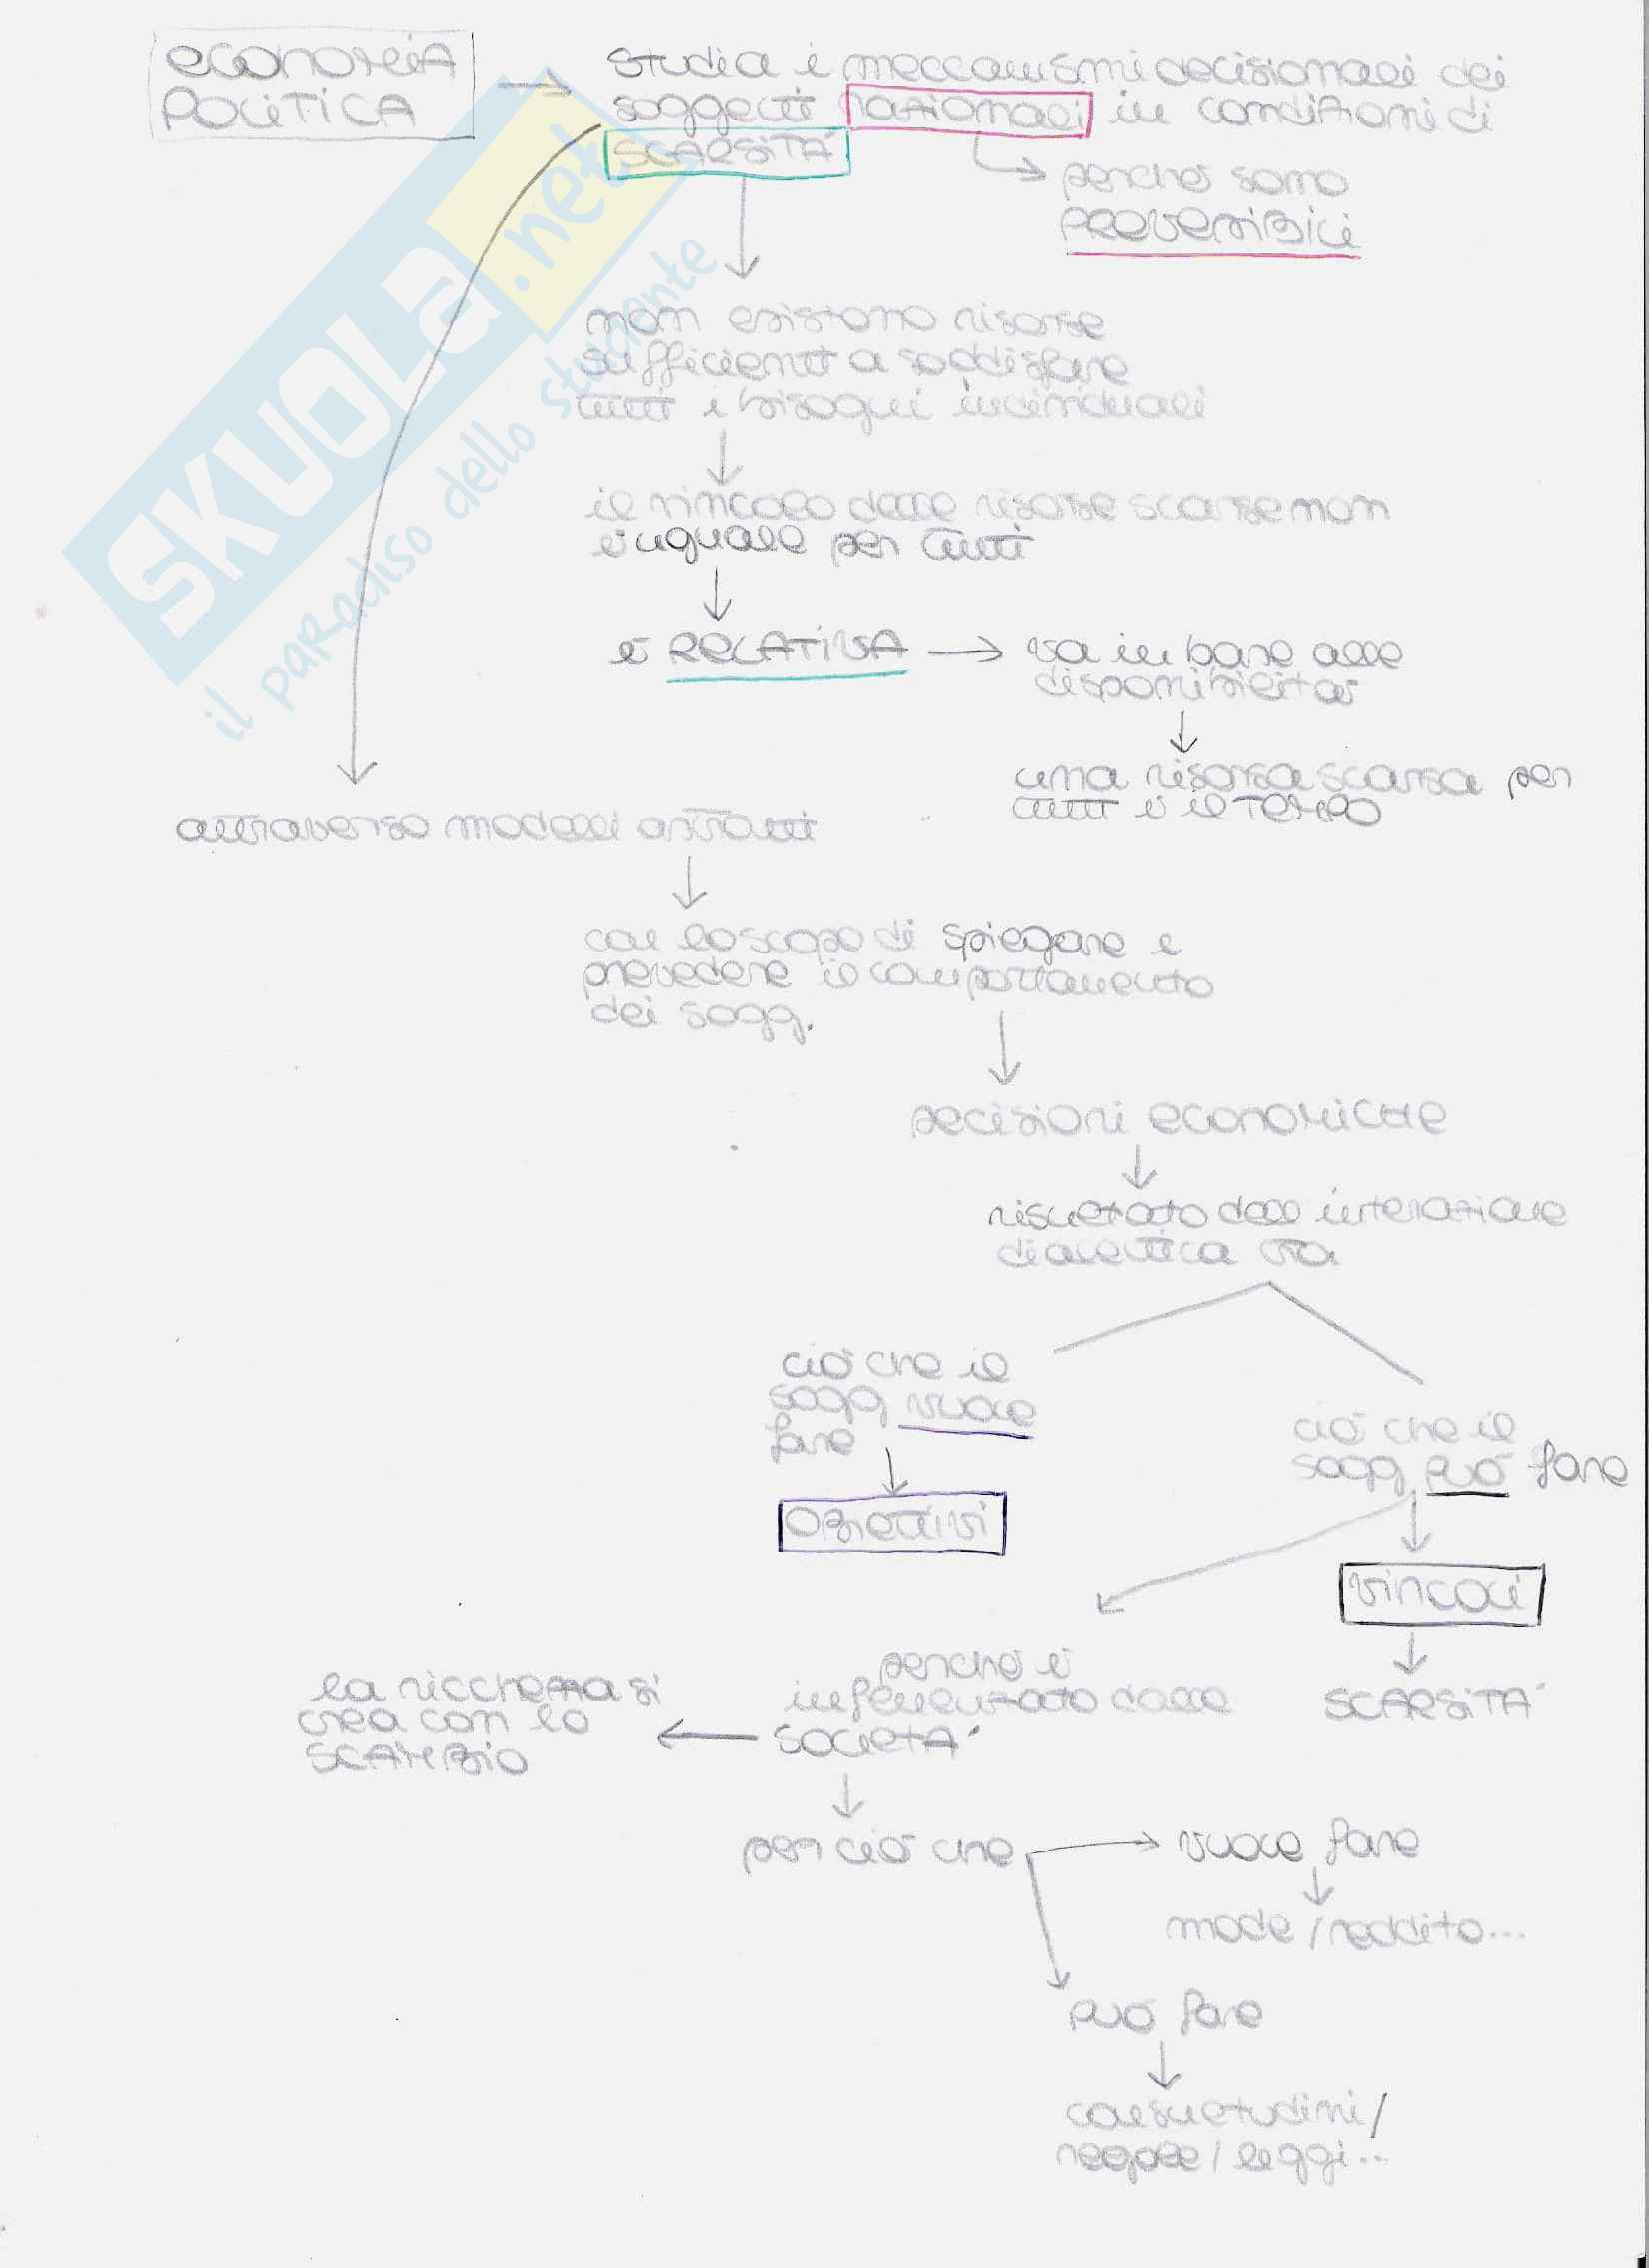 ECONOMIA
POLITICA
studia i meccanismi decisionali dei
soggetti razionali in condizioni di
SCARSITÀ
perché sono
PREVEDIBILI
non esistono risorse
sufficienti a soddisfare
tutti i bisogni individuali
il vincolo delle risorse scarse non
è uguale per tutti
è RELATIVA
va in base alle
disponibilità
una risorsa scarsa per
tutti è il TEMPO
attraverso modelli astratti
con lo scopo di spiegare e
prevedere il comportamento
dei sogg.
DECISIONI ECONOMICHE
risultato dell interazione
dialettica tra
ciò che il
sogg vuole
fare
OBIETTIVI
ciò che il
sogg può fare
VINCOLI
SCARSITÀ
perché è
influenzato dalle
SOCIETÀ
la ricchezza si
crea con lo
SCAMBIO
per ciò che
vuole fare
mode / reddito...
può fare
consuetudini /
regole / leggi...
SKUOLA.net
il paradiso dello studente